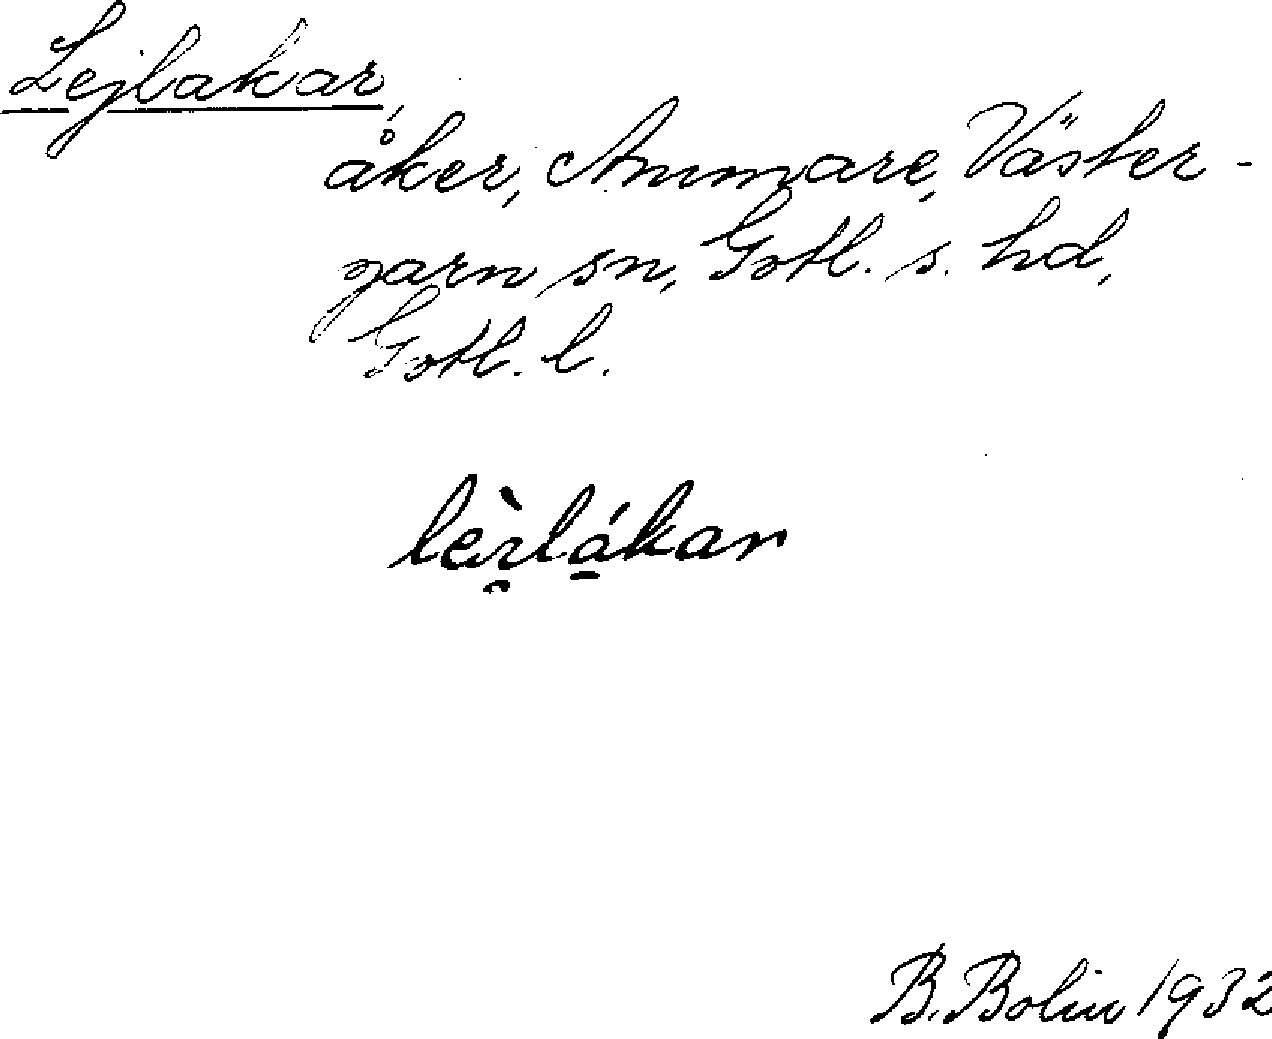 Lejlakar,
åker, Ammare, Väster-
garn sn, Gotl. s. hd,
Gotl. l.
B. Bolin 1932